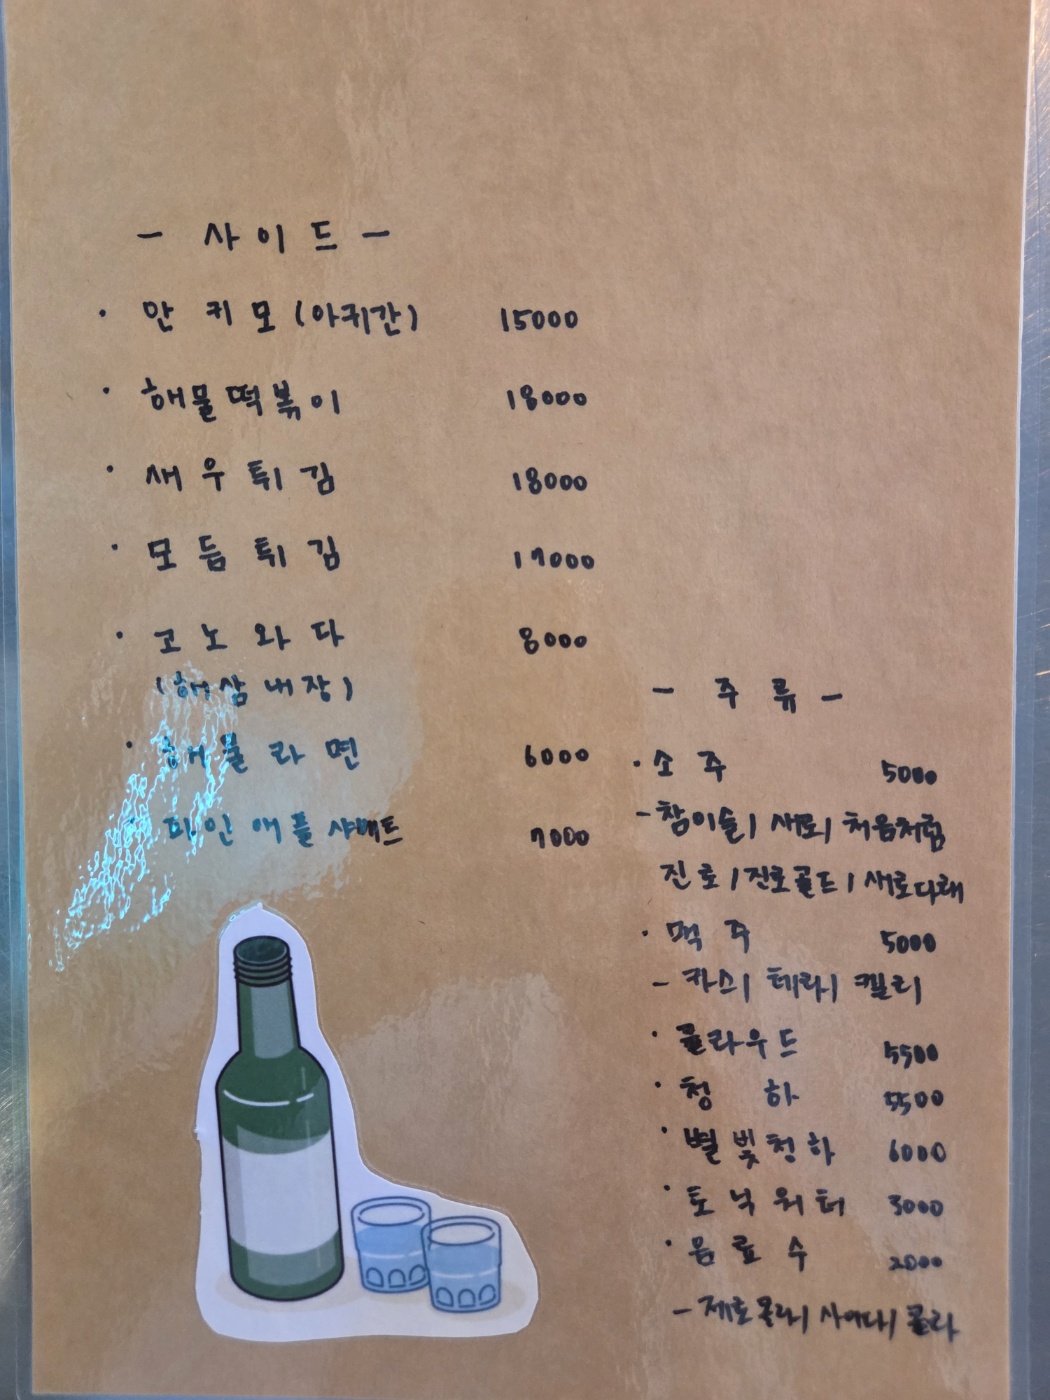 - 사이드 -
· 안키모 (아귀간) 15000
· 해물떡볶이 18000
· 새우튀김 18000
· 모듬튀김 17000
· 코노와다 8000
(해삼내장)
· 해물라면 6000
· 파인애플샤베트 7000
- 주류 -
· 소주 5000
- 참이슬 / 새로 / 처음처럼
진로 / 진로골드 / 새로다래
· 맥주 5000
- 카스 / 테라 / 켈리
· 클라우드 5500
· 청하 5500
· 별빛청하 6000
· 토닉워터 3000
· 음료수 2000
- 제로콜라 / 사이다 / 콜라